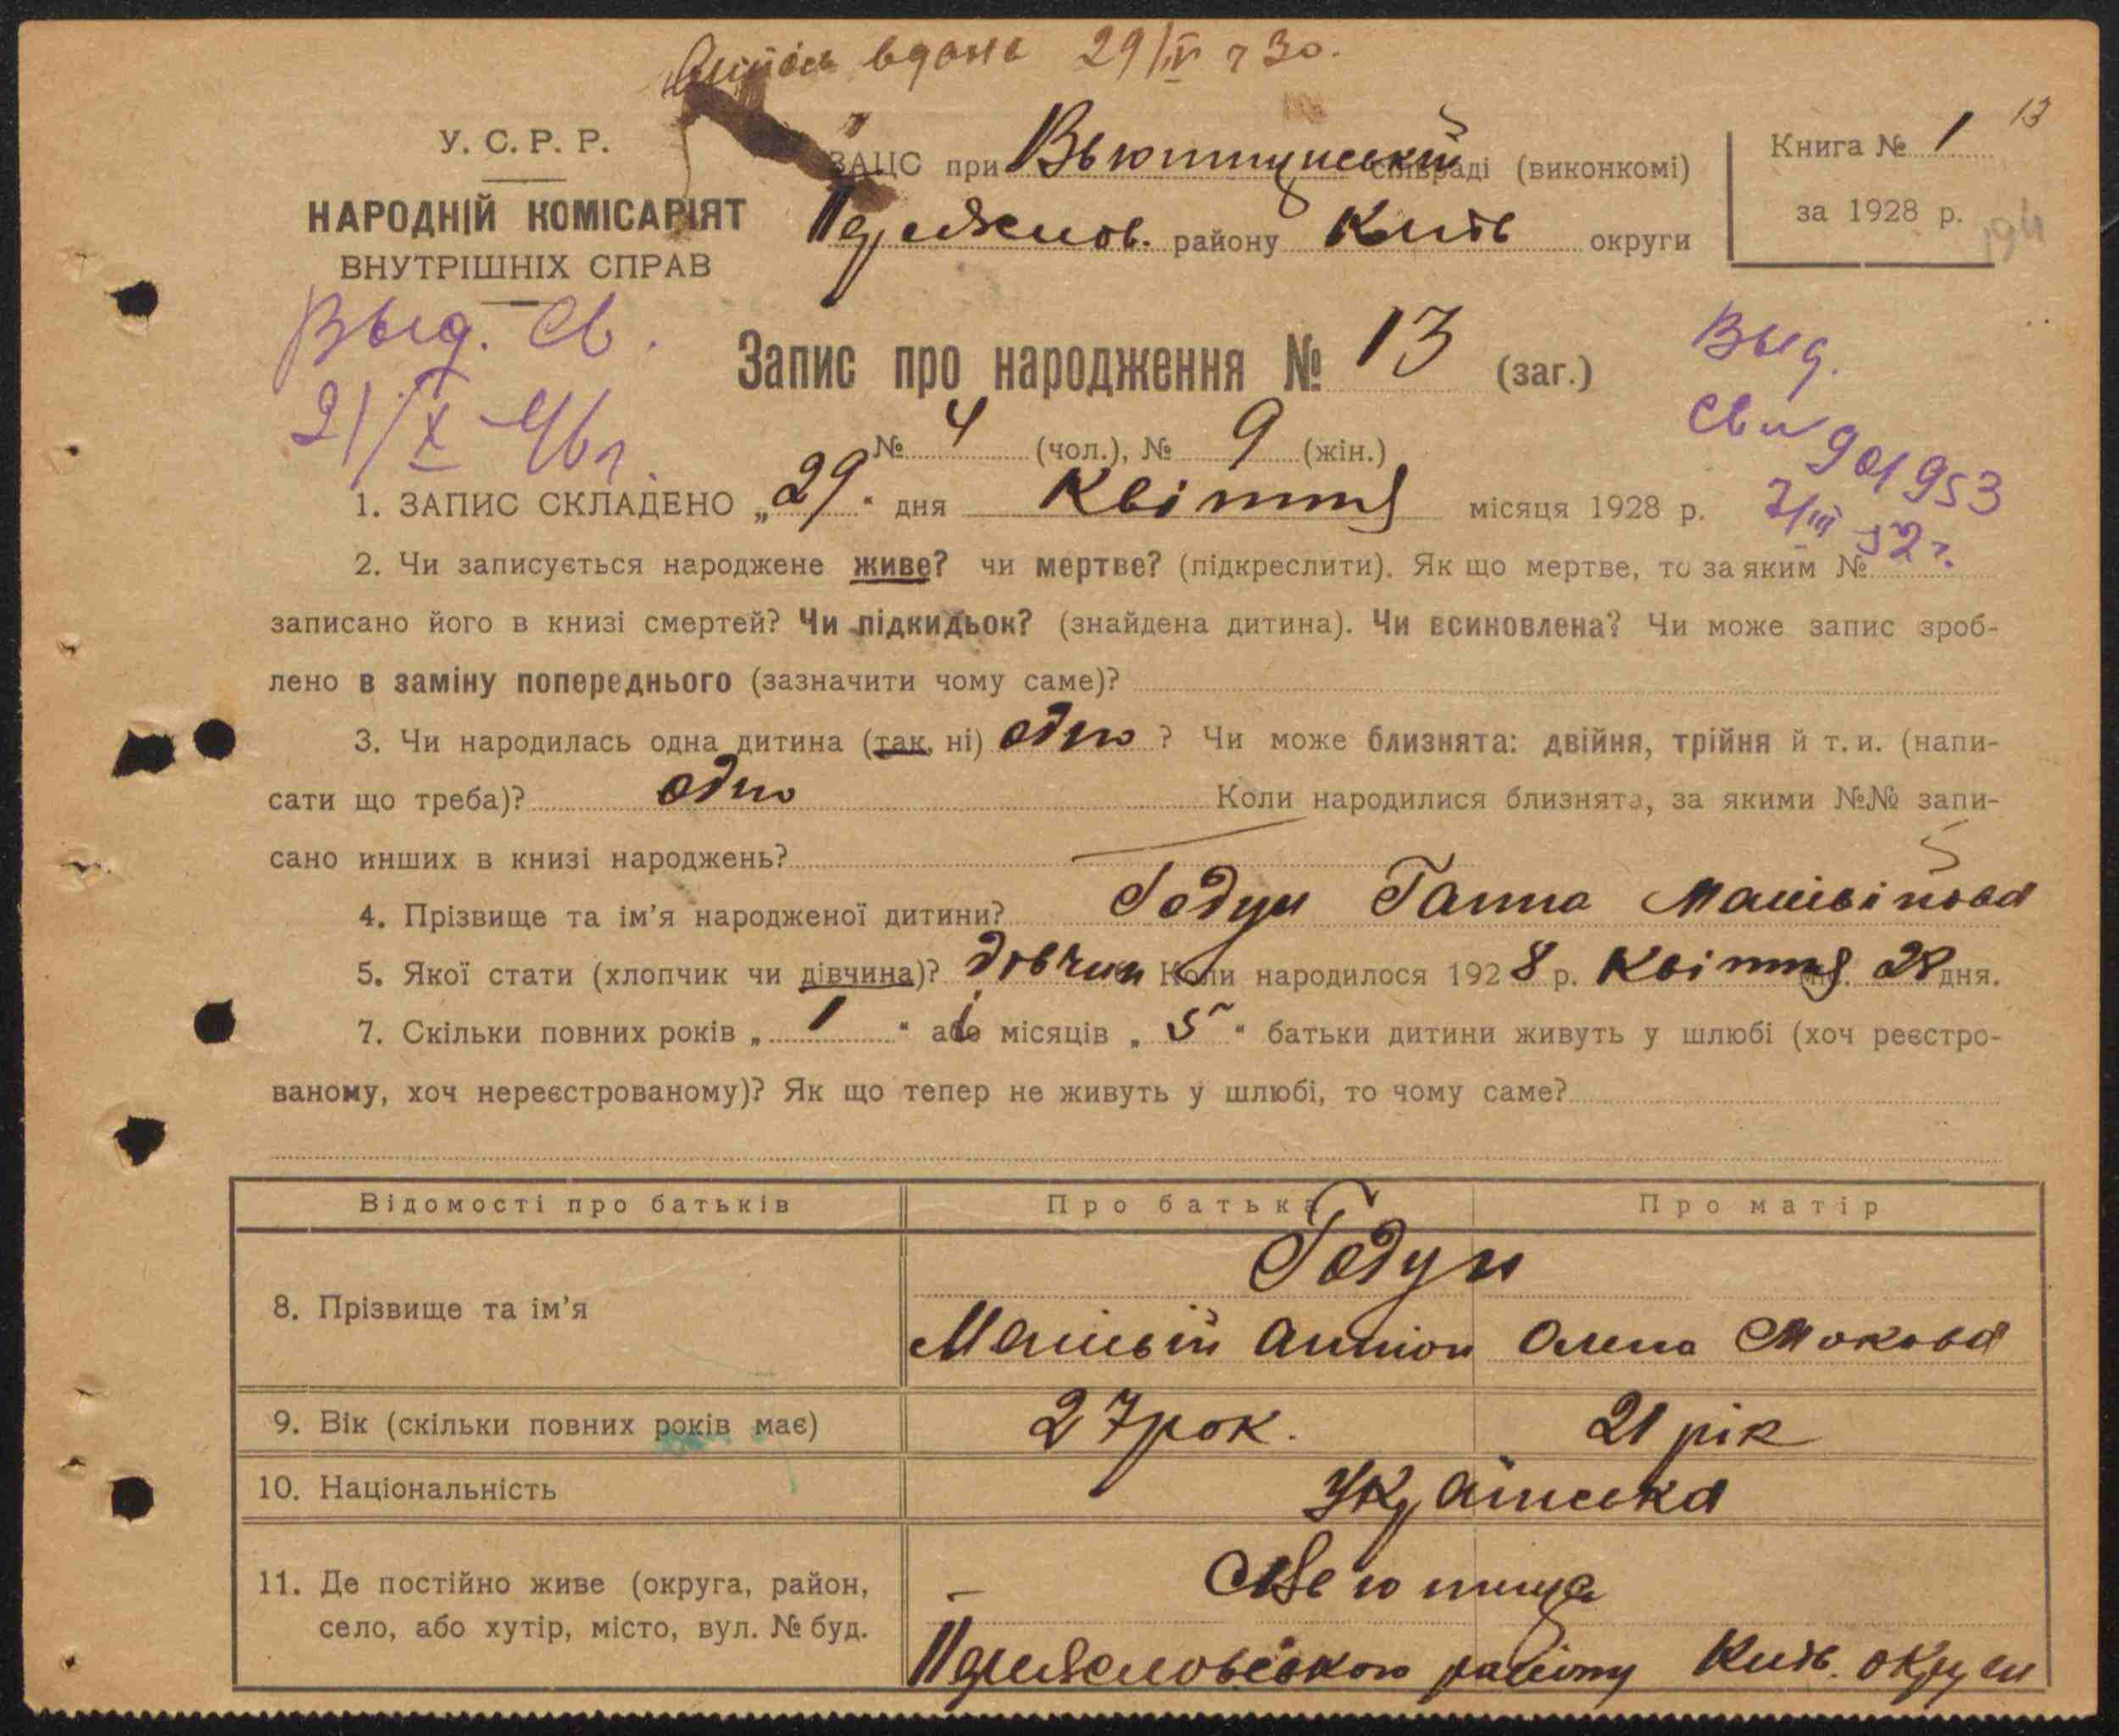 вдана 29/IV 30.
У. С. Р. Р.
НАРОДНІЙ КОМІСАРІЯТ
ВНУТРІШНІХ СПРАВ
ЗАЦС при Вьюнищнській сільраді (виконкомі)
Переяслов. району Київ округи
Книга № 1 13
за 1928 р.
194
Выд. Св.
21/X 46 г.
Запис про народження № 13 (заг.)
№ 4 (чол.), № 9 (жін.)
Выд.
Св
901953
7/III 52 г.
1. ЗАПИС СКЛАДЕНО „29" дня Квітня місяця 1928 р.
2. Чи записується народжене живе? чи мертве? (підкреслити). Як що мертве, то за яким №
записано його в книзі смертей? Чи підкидьок? (знайдена дитина). Чи всиновлена? Чи може запис зроб-
лено в заміну попереднього (зазначити чому саме)?
3. Чи народилась одна дитина (так, ні) одно ? Чи може близнята: двійня, трійня й т. и. (напи-
сати що треба)? одно Коли народилися близнята, за якими №№ запи-
сано инших в книзі народжень?
4. Прізвище та ім'я народженої дитини? Годун Ганна Матвійова
5. Якої стати (хлопчик чи дівчина)? дівчин Коли народилося 1928 р. Квітня 28 дня.
7. Скільки повних років „ 1 " або і місяців „ 5 " батьки дитини живуть у шлюбі (хоч реєстро-
ваному, хоч нереєстрованому)? Як що тепер не живуть у шлюбі, то чому саме?
Відомості про батьків Про батька Про матір
8. Прізвище та ім'я Годун
Матвій Антон Олена Мокова
9. Вік (скільки повних років має) 27 рок. 21 рік
10. Національність Українська
11. Де постійно живе (округа, район,
село, або хутір, місто, вул. № буд.
Переясловського району Київ. округи